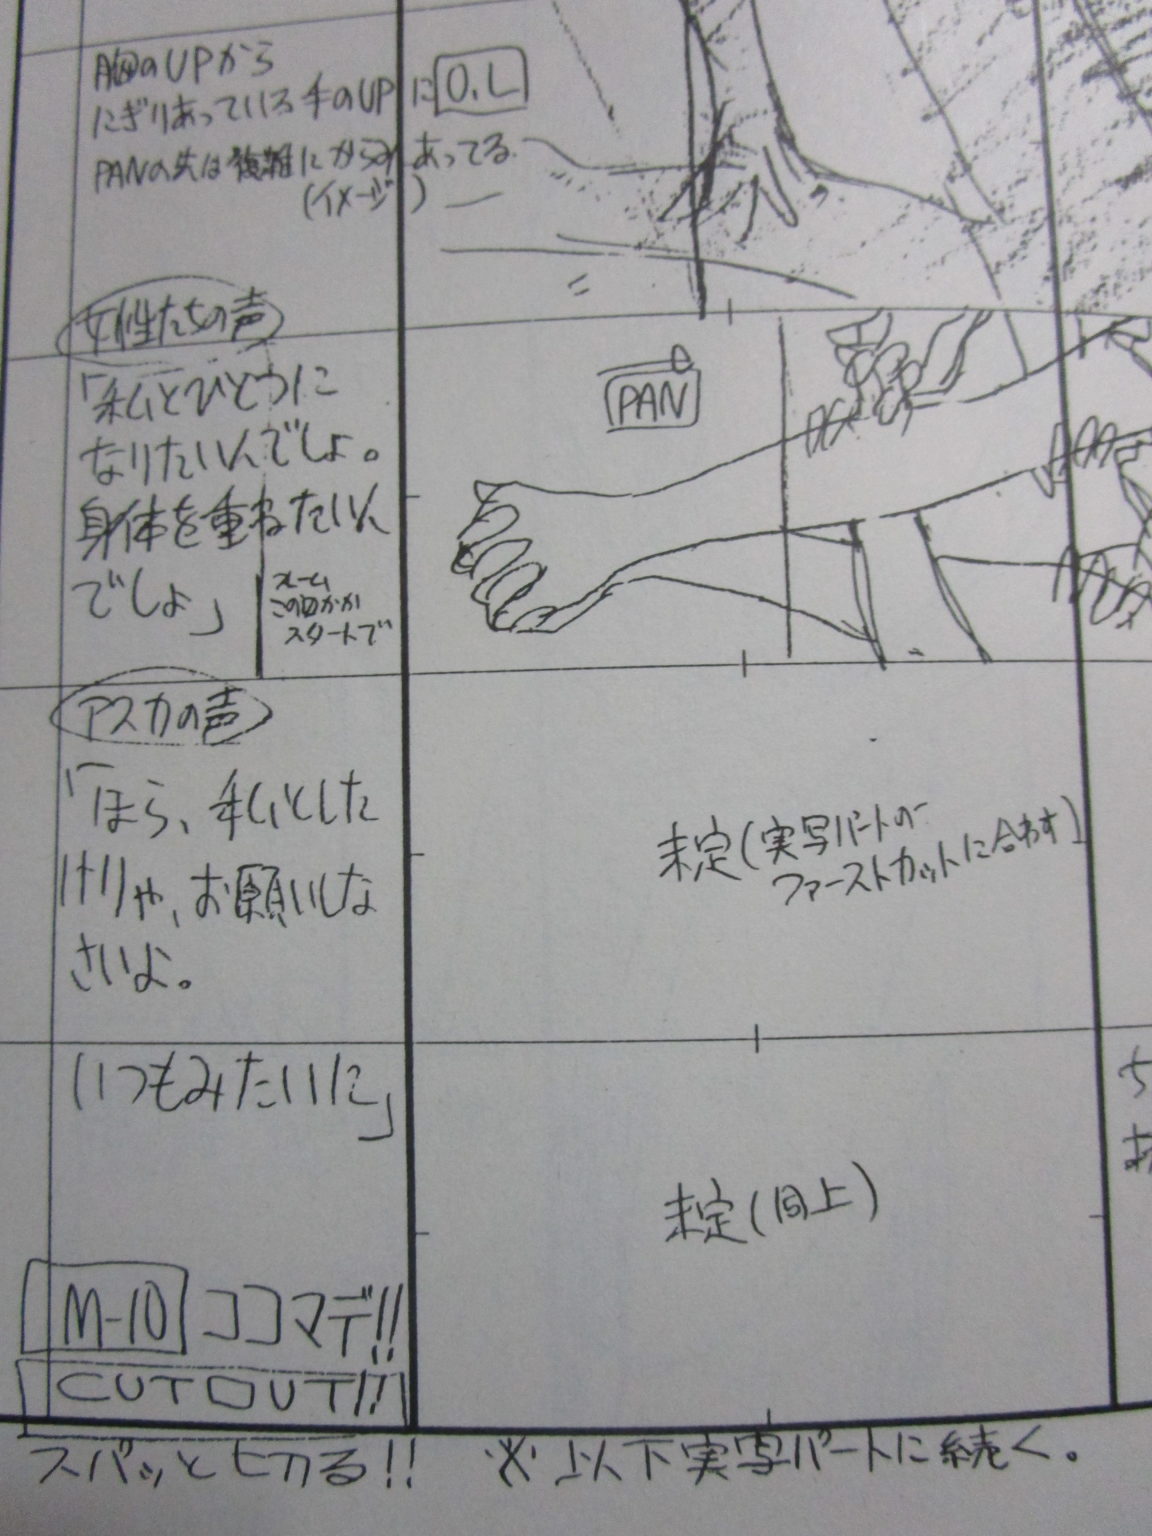 胸のUPから
にぎりあっている手のUPに O.L
PANの先は複雑にからみあってる
(イメージ)
女性たちの声
「私とひとつに
なりたいんでしょ。
身体を重ねたいん
でしょ」
この
スタートで
PAN
アスカの声
「ほら、私とした
けりゃ、お願いしな
さいよ。
未定(実写パートの
ファーストカットに合わす)
いつもみたいに」
未定(同上)
M-10 ココマデ!!
CUT OUT!!
スパッと切る!! ※以下実写パートに続く。